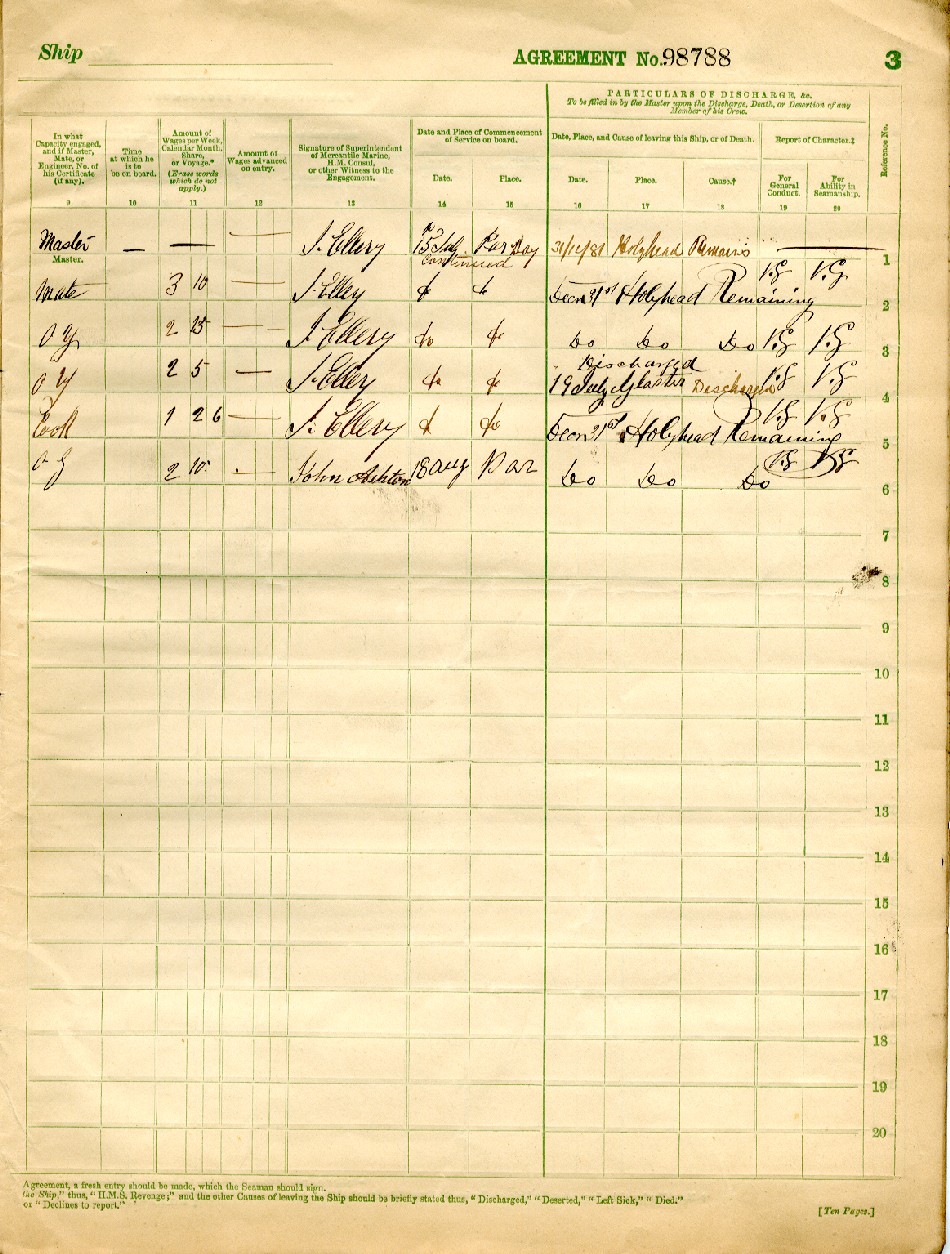 Ship AGREEMENT No. 98788 3
PARTICULARS OF DISCHARGE, &c.
To be filled in by the Master upon the Discharge, Death, or Desertion of any
Member of his Crew.
In what
Capacity engaged,
and if Master,
Mate, or
Engineer, No. of
his Certificate
(if any).
Time
at which he
is to
be on board.
Amount of
Wages per Week,
Calendar Month,
Share,
or Voyage.*
(Erase words
which do not
apply.)
Amount of
Wages advanced
on entry.
Signature of Superintendent
of Mercantile Marine,
H.M. Consul,
or other Witness to the
Engagement.
Date and Place of Commencement
of Service on board.
Date. Place.
Date, Place, and Cause of leaving this Ship, or of Death.
Date. Place. Cause.†
Report of Character.‡
For
General
Conduct.
For
Ability in
Seamanship.
Reference No.
9 10 11 12 13 14 15 16 17 18 19 20
Master — — — J. Ellery 15 July Par Bay Holyhead Remains 1
Master. continued
Mate 3 10 — J Ellery Decr 31st Holyhead Remaining V.G V.G. 2
2 15 — J. Ellery Do Do Do V.G V.G 3
Discharged
2 5 — J. Ellery 19 July Gloster Discharged V.G V.G 4
Cook 1 2 6 — J. Ellery Decr 31st Holyhead Remaining V.G V.G 5
2 10 - John Ashton 18 Aug Par Do Do Do V.G V.G 6
7
8
9
10
11
12
13
14
15
16
17
18
19
20
Agreement, a fresh entry should be made, which the Seaman should sign.
the Ship," thus, "H.M.S. Revenge;" and the other Causes of leaving the Ship should be briefly stated thus, "Discharged," "Deserted," "Left Sick," "Died."
or "Declines to report."
[Ten Pages.]